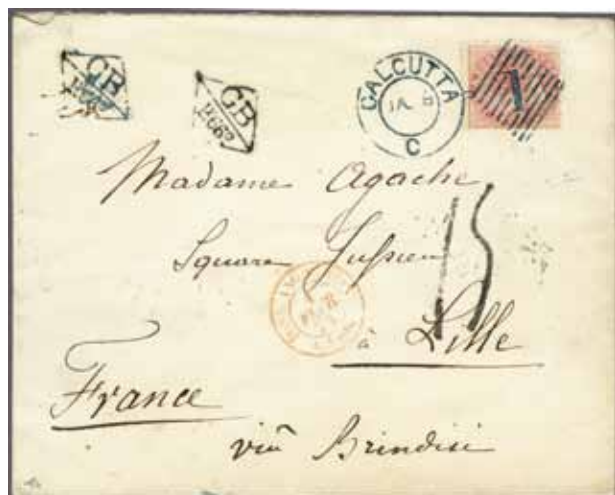 GB
1F66c
GB
1F66c
CALCUTTA
JA 8
C
1
Madame Agache
15
Square Jussieu
à Lille
France
viâ Brindisi